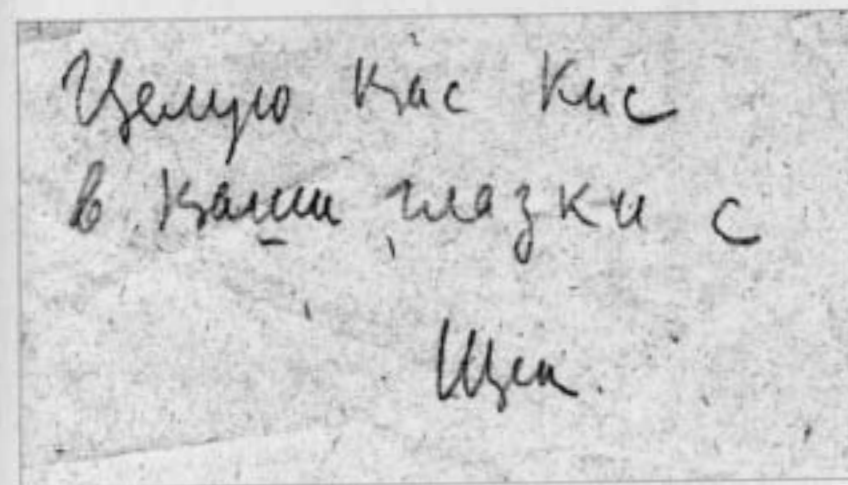 Целую Вас Кис
в Ваши глазки с
Щен.